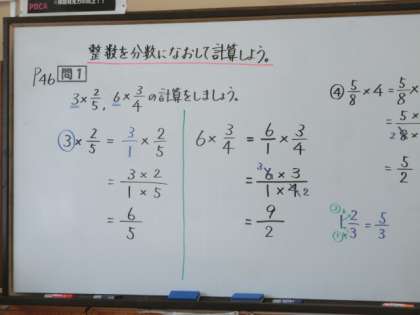 PDCA
整数を分数になおして計算しよう。
P46 問1
3×2/5, 6×3/4 の計算をしましょう。
③×2/5 = 3/1 × 2/5
= 3×2/1×5
= 6/5
6×3/4 = 6/1 × 3/4
= 6×3/1×4 3 2
= 9/2
④ 5/8×4 = 5/8×
= 5×/8× 2
= 5/2
② 1 2/3 = 5/3
①